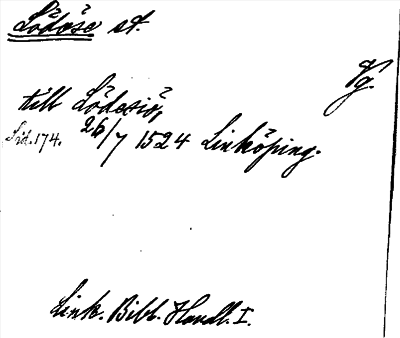 Lödöse st.
Vg.
till Lödesiö,
Sid. 174. 26/7 1524 Linköping.
Link. Bibl. Handl. I.